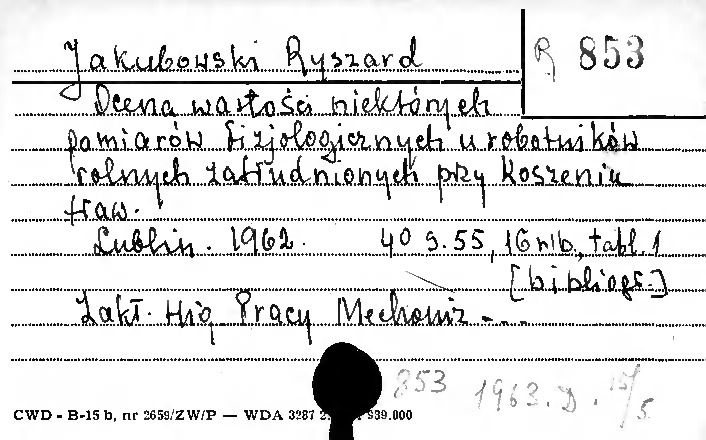 Jakubowski Ryszard
R 853
Ocena wartości niektórych
pomiarów fizjologicznych u robotników
rolnych zatrudnionych przy koszeniu
traw.
Lublin. 1962. 4° s. 55, 16 nlb., tabl. 1
[bibliogr.]
Zakł. Hig Pracy Mechaniz - ...
853 1963. D. 15/5
CWD - B-15 b, nr 2659/ZW/P — WDA 3287 939.000